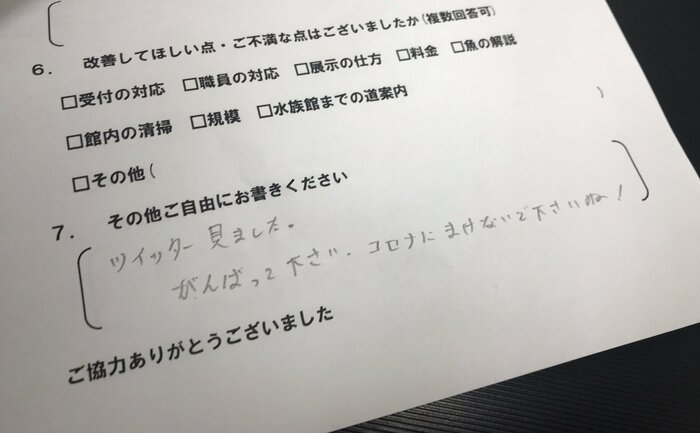 6. 改善してほしい点・ご不満な点はございましたか(複数回答可)
□受付の対応 □職員の対応 □展示の仕方 □料金 □魚の解説
□館内の清掃 □規模 □水族館までの道案内
□その他( )
7. その他ご自由にお書きください
ツイッター見ました。
がんばって下さい。コロナにまけないで下さいね!
ご協力ありがとうございました